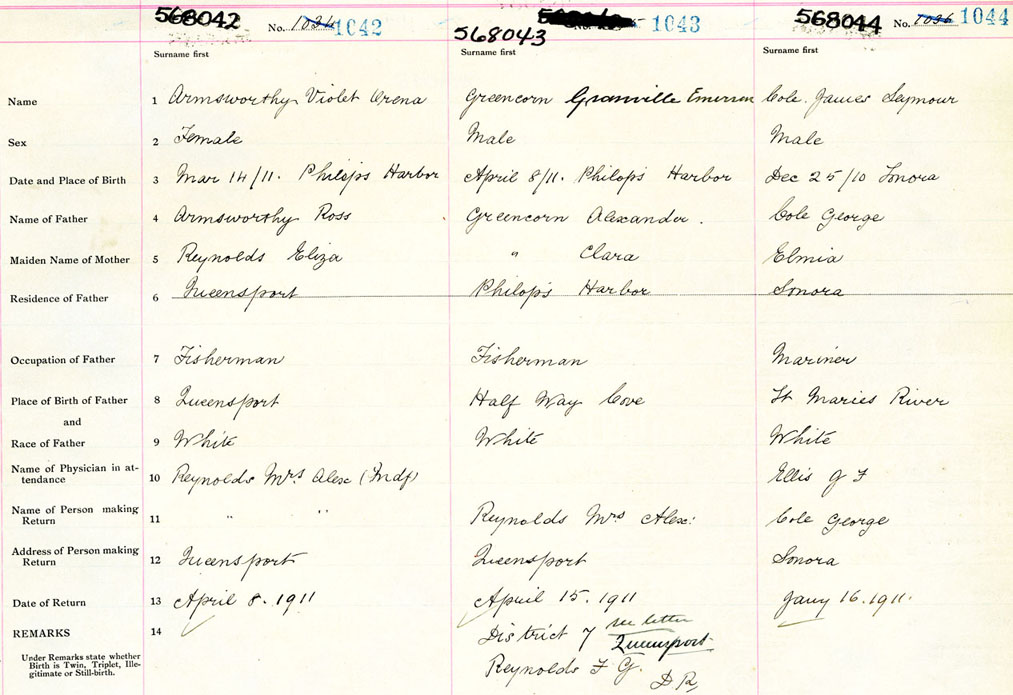 568042 No. 1034 1042 1043 568044 No. 1036 1044
568043
Surname first Surname first Surname first
Name 1 Armsworthy Violet Orena Greencorn Granville Emerson Cole James Seymour
Sex 2 Female Male Male
Date and Place of Birth 3 Mar 14/11. Philops Harbor April 8/11. Philops Harbor Dec 25/10 Sonora
Name of Father 4 Armsworthy Ross Greencorn Alexander. Cole George
Maiden Name of Mother 5 Reynolds Eliza " Clara Elmia
Residence of Father 6 Queensport Philops Harbor Sonora
Occupation of Father 7 Fisherman Fisherman Mariner
Place of Birth of Father 8 Queensport Half Way Cove St Maries River
and
Race of Father 9 White White White
Name of Physician in at-
tendance 10 Reynolds Mrs Alex (Mdf) Ellis G F
Name of Person making
Return 11 " " Reynolds Mrs Alex: Cole George
Address of Person making
Return 12 Queensport Queensport Sonora
Date of Return 13 April 8. 1911 April 15. 1911 Jany 16. 1911.
REMARKS 14 District 7 see letter
Queensport
Under Remarks state whether
Birth is Twin, Triplet, Ille-
gitimate or Still-birth.
Reynolds F G.
D R,